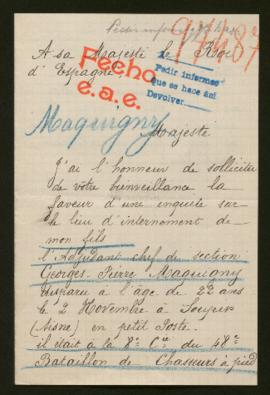 A sa Majesté le Roi
d'Espagne
Fecho
e.a.e.
Pedir informes
que se hace así
Devolver
Maquigny
Majesté
J'ai l'honneur de solliciter
de votre bienveillance la
faveur d'une enquête sur
le lieu d'internement de
mon fils
l'Adjudant chef de section
Georges Pierre Maquigny
disparu à l'âge de 22 ans
le 2 Novembre à Soupir
(Aisne) en petit Poste.
il était à la 8e Cie du 48e
Bataillon de Chasseurs à pied